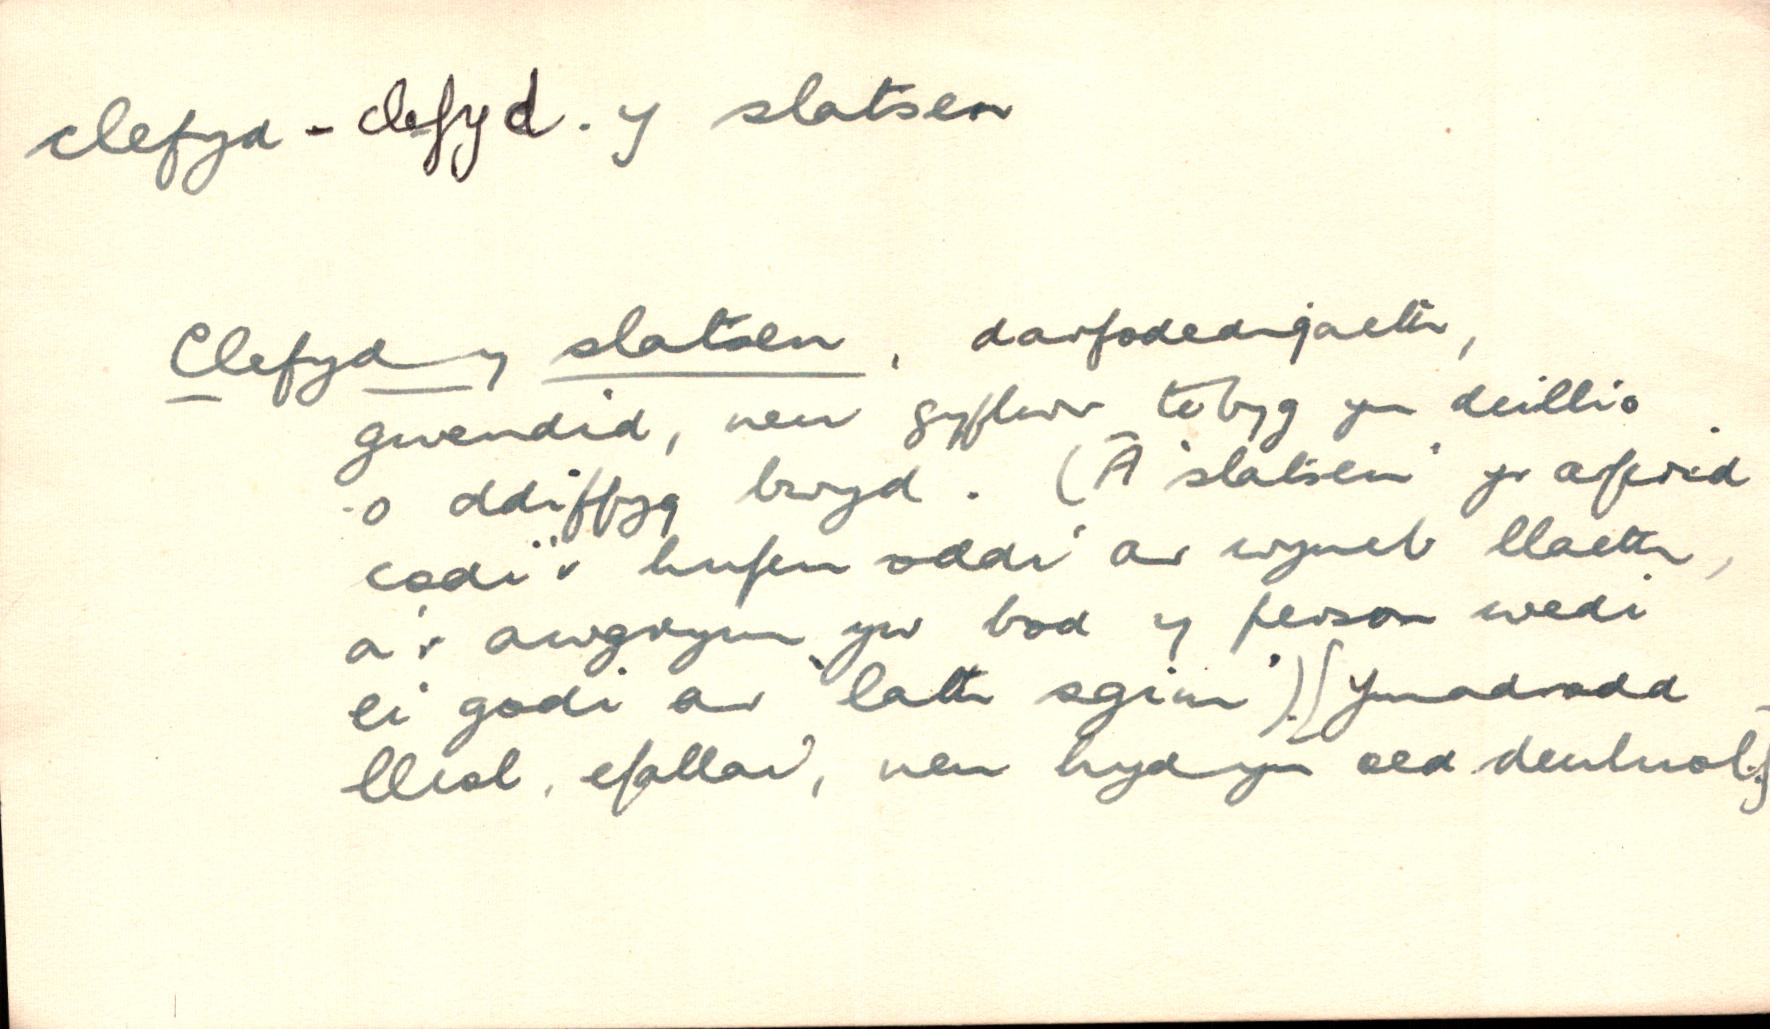 clefyd - clefyd. y slatsen
Clefyd y slatsen, darfodedigaeth,
gwendid, neu gyflwr tebyg yn deillio
o ddiffyg bwyd. (Â 'slatsen' yr arferid
codi'r hufen oddi ar wyneb llaeth,
a'r awgrym yw bod y person wedi
ei godi ar 'lath sgim'). [Ymadrodd
lleol, efallai, neu hyd yn oed deuluol.]